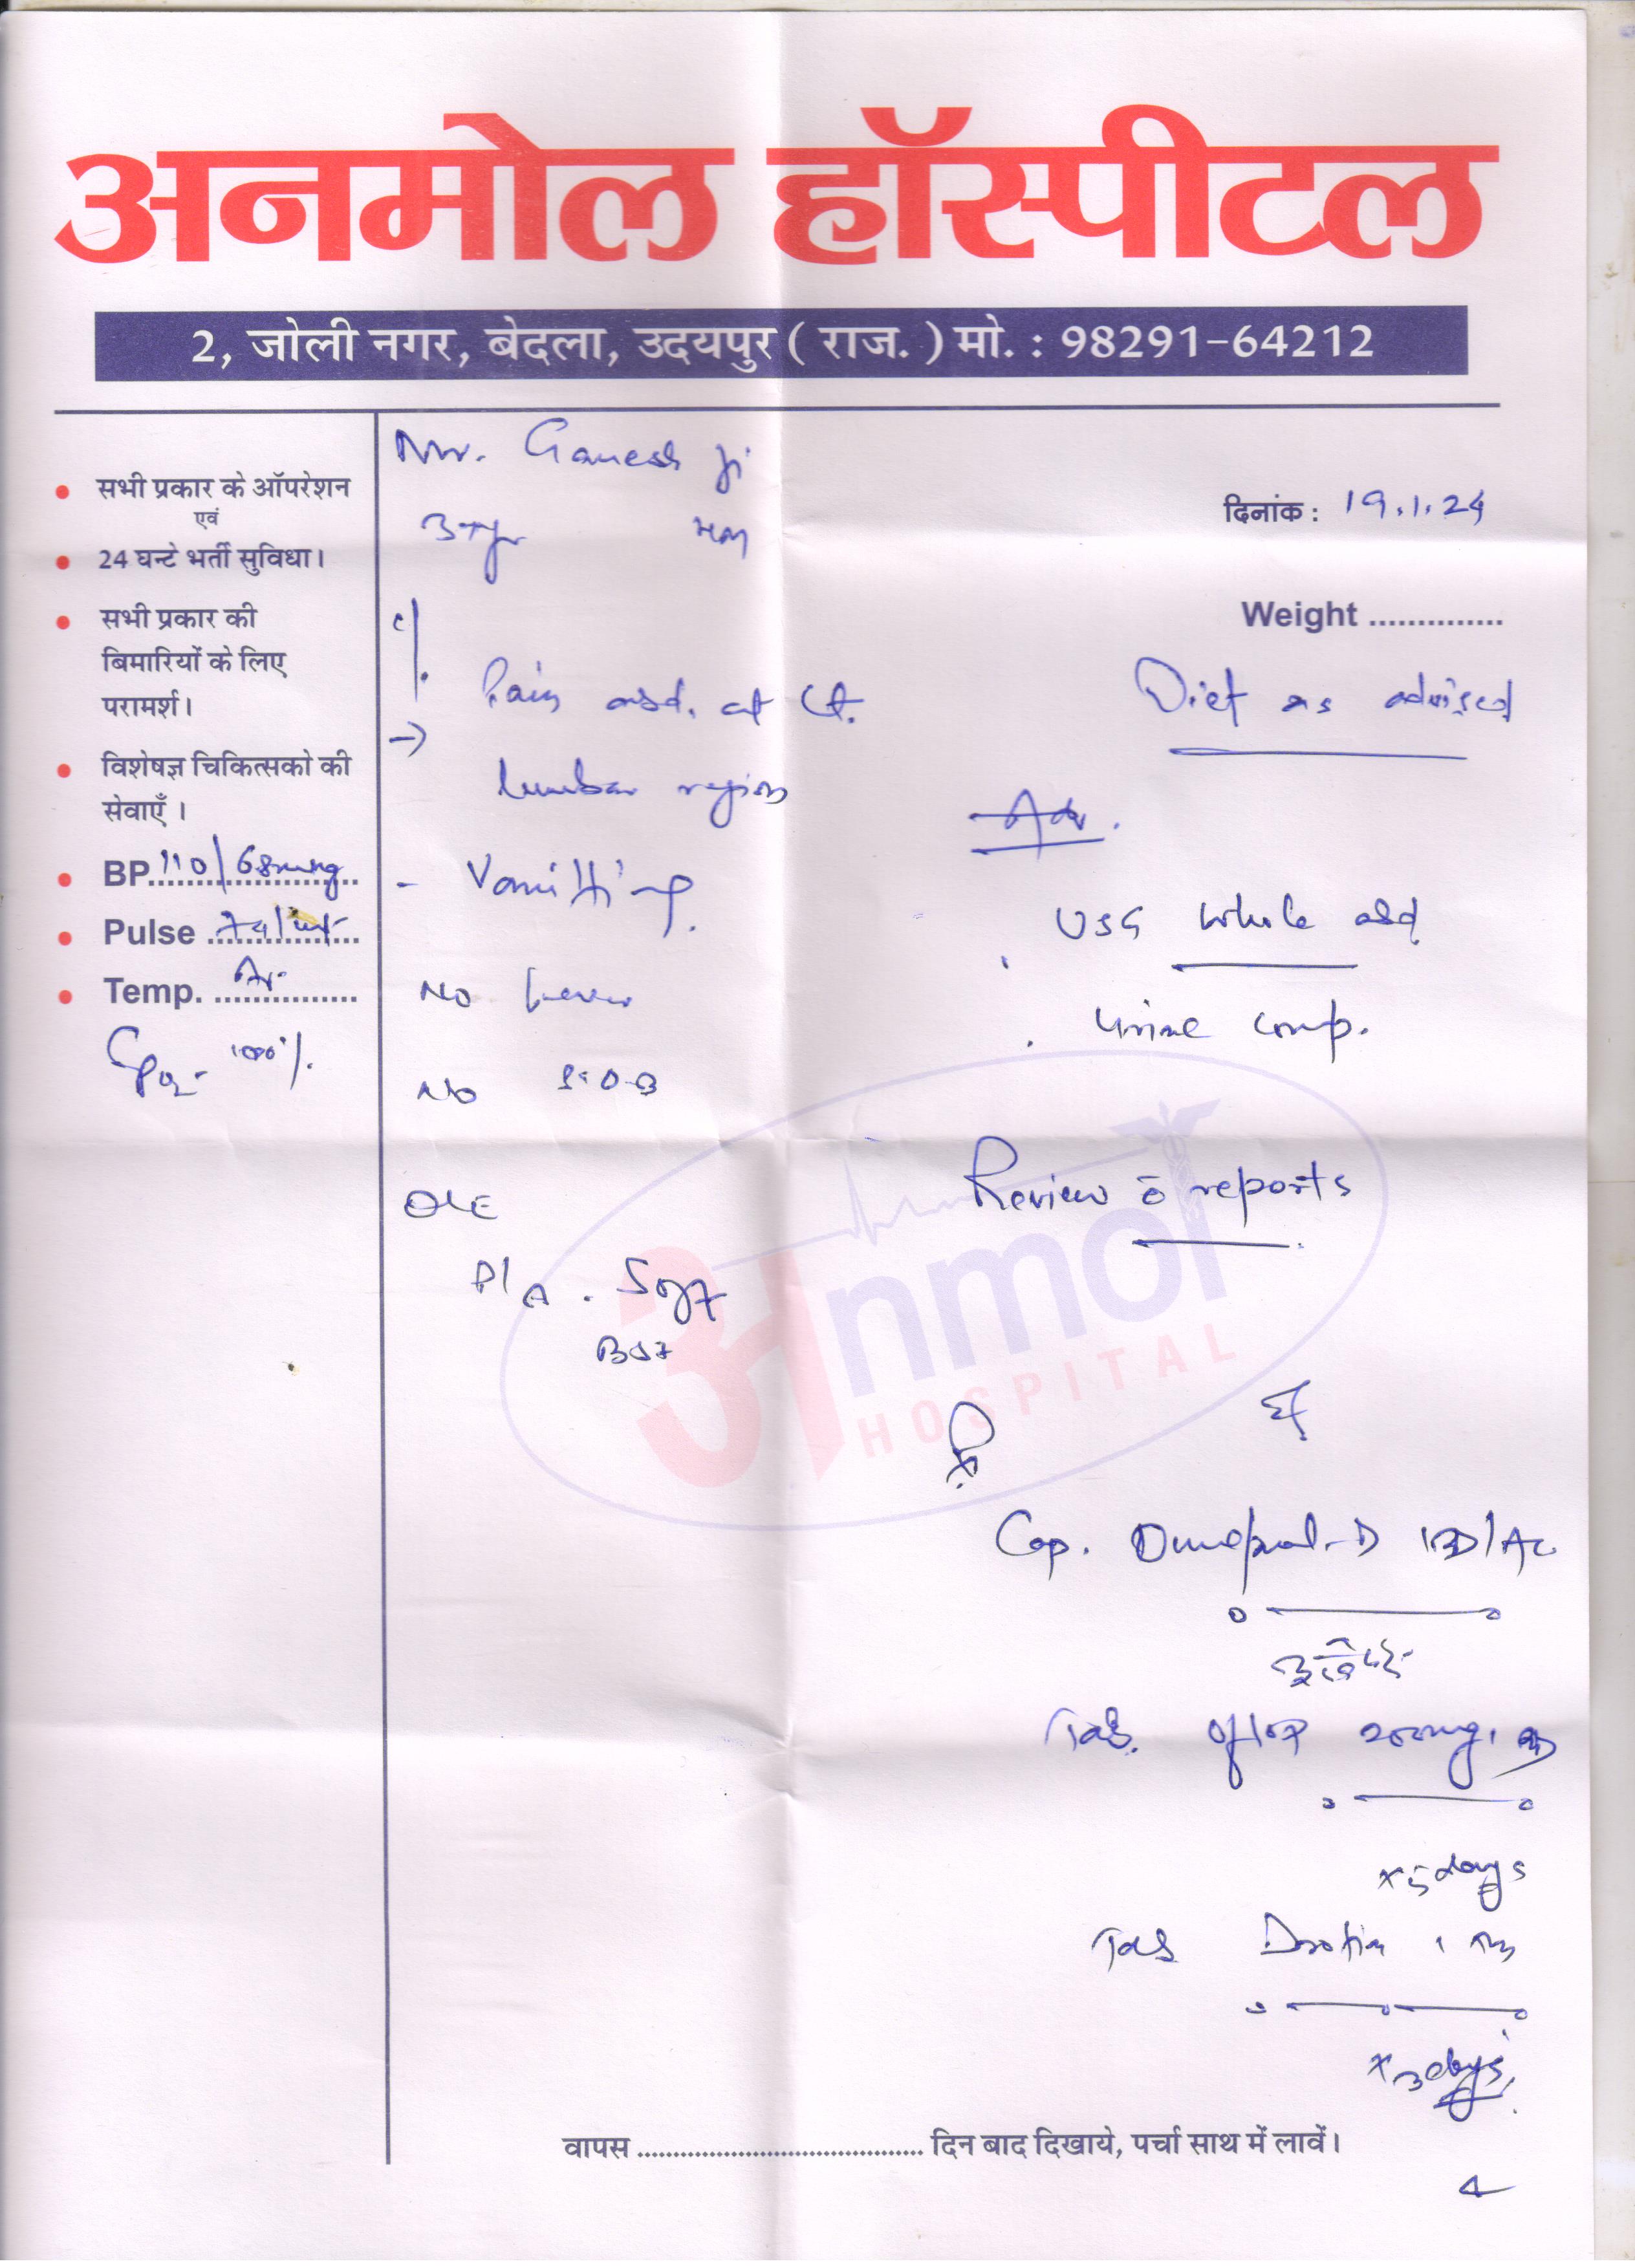 अनमोल हॉस्पीटल
2, जोली नगर, बेदला, उदयपुर ( राज. ) मो. : 98291-64212
Mr. Ganesh Ji
दिनांक : 19.1.24
Weight ...............
• सभी प्रकार के ऑपरेशन
एवं
• 24 घन्टे भर्ती सुविधा।
• सभी प्रकार की
बिमारियों के लिए
परामर्श।
• विशेषज्ञ चिकित्सको की
सेवाएँ ।
• BP. 110/68mmHg
• Pulse
• Temp.
SpO2- 100%
c/.
→ Pain abd. at Lt.
lumbar region
- Vomitting.
No fever
No S.O.B
O/E
P/A . Soft
Diet as advised
Adv.
. USG whole abd
. Urine comp.
Review c̄ reports
अnmol
HOSPITAL
Rx
Cap. Omeprol-D 1BD/AC
Tab. Oflox 200mg.
x 5 days
Tab Drotin 1
x 3 days
वापस ........................................ दिन बाद दिखाये, पर्चा साथ में लावें।